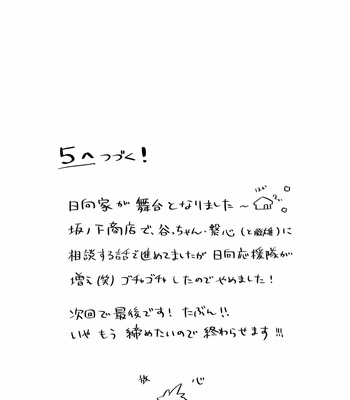 5へつづく!
日向家が舞台となりました～
坂ノ下商店で、谷っちゃん・繋心(と龍雄)に
相談する話で進めてましたが日向応援隊が
増え(笑)ゴチャゴチャしたのでやめました!
次回で最後です!たぶん!!
いやもう締めたいので終わらせます!!!
放 心